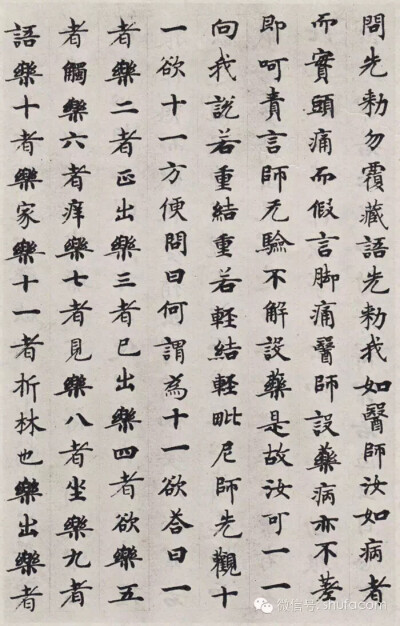 問先勑勿覆藏語先勑我如醫師汝如病者
而實頭痛而假言脚痛醫師設藥病亦不差
即呵責言師无驗不解設藥是故汝可一一
向我說若重結重若輕結輕毗尼師先觀十
一欲十一方便問曰何謂為十一欲荅曰一
者樂二者正出樂三者已出樂四者欲樂五
者觸樂六者痒樂七者見樂八者坐樂九者
語樂十者樂家樂十一者析林也樂出樂者
微信号: shufa.com